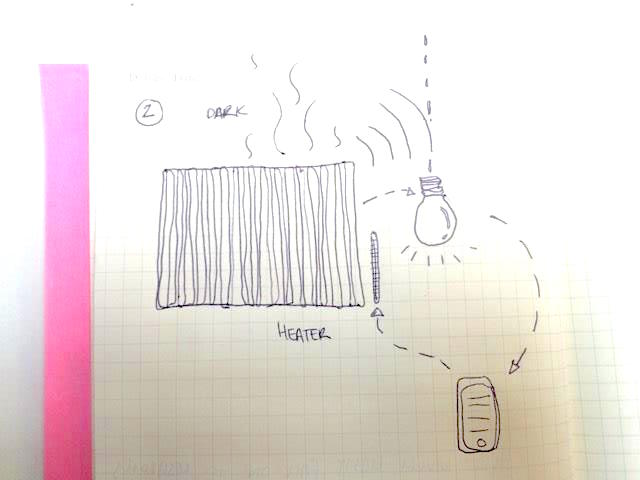 2
DARK
HEATER